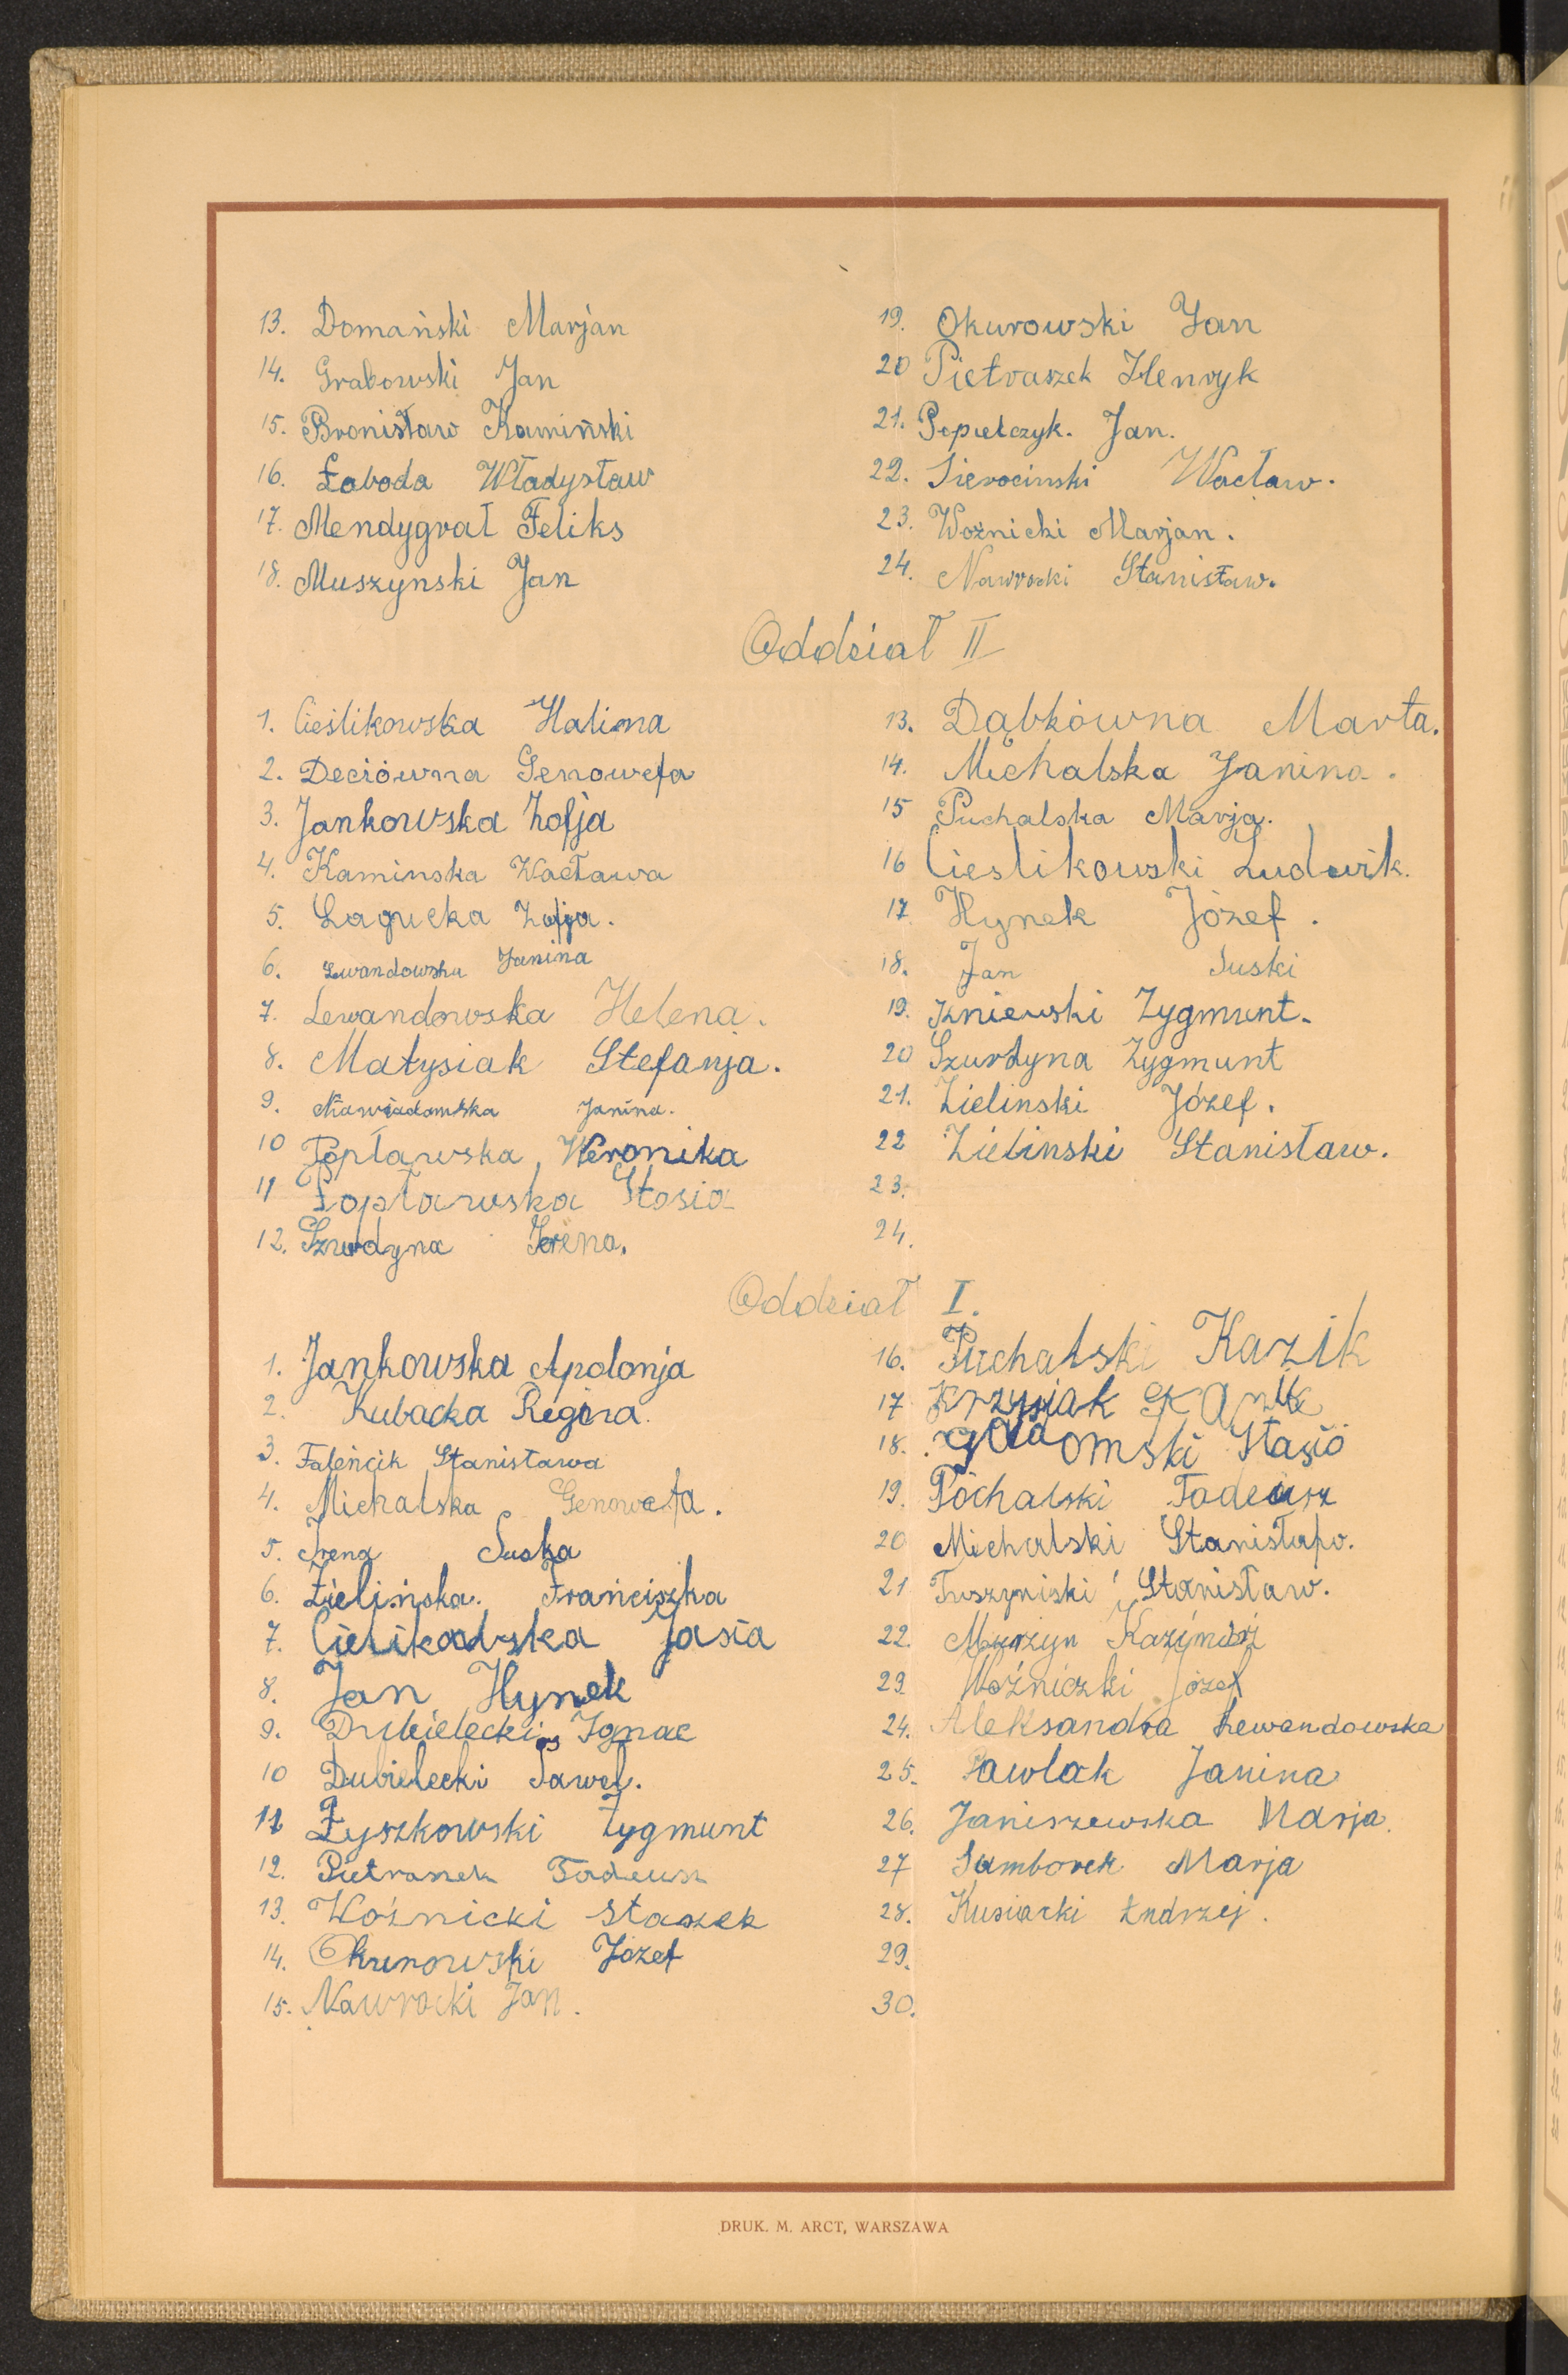 13. Domański Marjan
14. Grabowski Jan
15. Bronisław Kamiński
16. Łaboda Władysław
17. Mendygrał Feliks
18. Muszynski Jan
19. Okurowski Jan
20 Pietraszek Henryk
21. Popielczyk. Jan.
22. Sierocinski Wacław.
23. Woźnicki Marjan.
24. Nawrocki Stanisław.
Oddział II
1. Cieślikowska Halina
2. Deciówna Genowefa
3. Jankowska Zofja
4. Kaminska Wacława
5. Łagucka Zofja.
6. Lwandowska Janina
7. Lewandowska Helena.
8. Matysiak Stefanja.
9. Niawiadomska Janina.
10 Popławska Weronika
11 Popławska Stasia
12. Szurdyna Irena.
13. Dąbkówna Marta.
14. Michalska Janina.
15 Puchalska Marja.
16 Cieslikowski Ludwik.
17 Hynek Józef.
18. Jan Suski
19. Kniewski Zygmunt.
20 Szurdyna Zygmunt
21. Zielinski Józef.
22 Zielinski Stanisław.
23.
24.
Oddział I.
1. Jankowska Apolonja
2. Kubacka Regina.
3. Faleńcik Stanisława
4. Michalska Genowefa.
5. Irena Suska
6. Zielińska. Franciszka
7. Jasia
8. Jan Hynek
9. Dubielecki Ignac
10 Dubielecki Paweł.
11 Łyszkowski Zygmunt
12. Pietranek Tadeusz
13. Woźnicki Staszek
14. Okurowski Józef
15. Nawrocki Jan.
16. Puchalski Kazik
17 Krzysiak
18. Stasio
19. Pochalski Tadeusz
20 Michalski Stanisław.
21 Tuszyniski Stanisław.
22. Murzyn Kazimierz
23 Woźniczki Józef
24. Aleksandra Lewandowska
25. Pawlak Janina
26. Janiszewska Marja.
27 Samborek Marja
28. Kusiacki Andrzej.
29.
30.
DRUK. M. ARCT, WARSZAWA